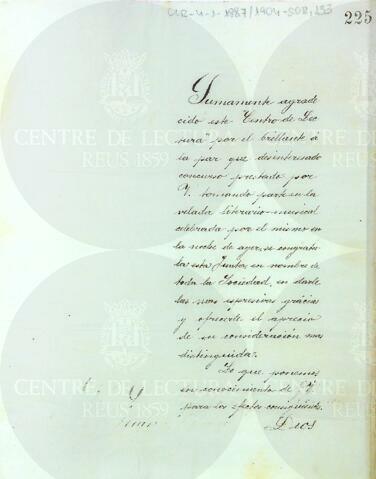 225
Sumamente agrade
cido este "Centro de Lec
tura" por el brillante á
la par que desinteresado
concurso prestado por
V. tomando parte en la
velada literario-musical
celebrada por el mismo en
la noche de ayer, se congratu
la esta Junta, en nombre de
toda la Sociedad, en darle
las mas espresivas gracias
y ofrecerle el aprecio
de su consideración mas
distinguida.
Lo que ponemos
en conocimiento de V.
para los efectos consiguientes.
Dios
CENTRE DE LECTURA
REUS 1859
CENTRE DE LECTURA
REUS 1859